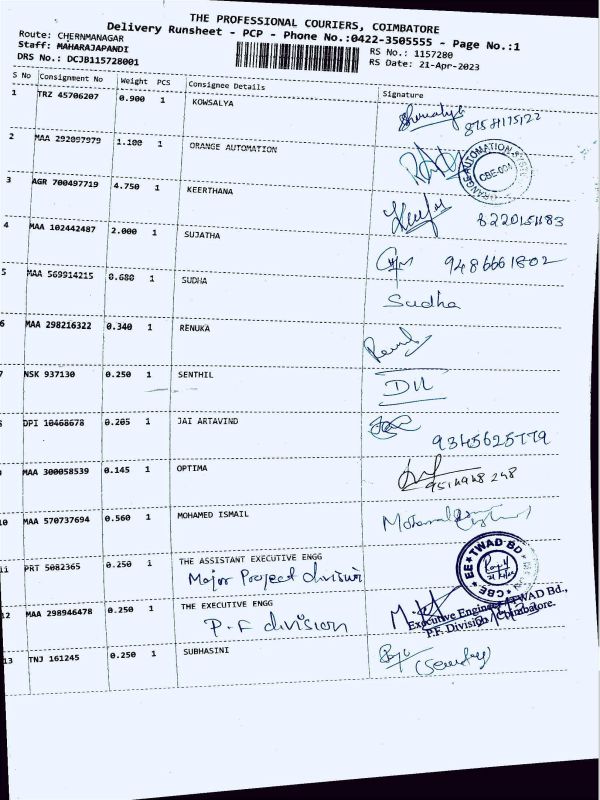 THE PROFESSIONAL COURIERS, COIMBATORE
Delivery Runsheet - PCP - Phone No.:0422-3505555 - Page No.:1
Route: CHERNMANAGAR
Staff: MAHARAJAPANDI
RS No.: 1157280
DRS No.: DCJB115728001
RS Date: 21-Apr-2023
S No Consignment No Weight PCS Consignee Details Signature
1 TRZ 45706207 0.900 1 KOWSALYA
2 MAA 292097979 1.100 1 ORANGE AUTOMATION
CBE-004
3 AGR 700497719 4.750 1 KEERTHANA
4 MAA 102442487 2.000 1 SUJATHA 9486661802
5 MAA 569914215 0.680 1 SUDHA Sudha
6 MAA 298216322 0.340 1 RENUKA
7 NSK 937130 0.250 1 SENTHIL
8 DPI 10468678 0.205 1 JAI ARTAVIND
9345625779
9 MAA 300058539 0.145 1 OPTIMA
10 MAA 570737694 0.560 1 MOHAMED ISMAIL
11 PRT 5082365 0.250 1 THE ASSISTANT EXECUTIVE ENGG
Major Project division
EE ★ TWAD-BD ★ CBE ★
12 MAA 298946478 0.250 1 THE EXECUTIVE ENGG
P.F division
Executive Engineer / TWAD Bd.,
P.F. Division / Coimbatore.
13 TNJ 161245 0.250 1 SUBHASINI